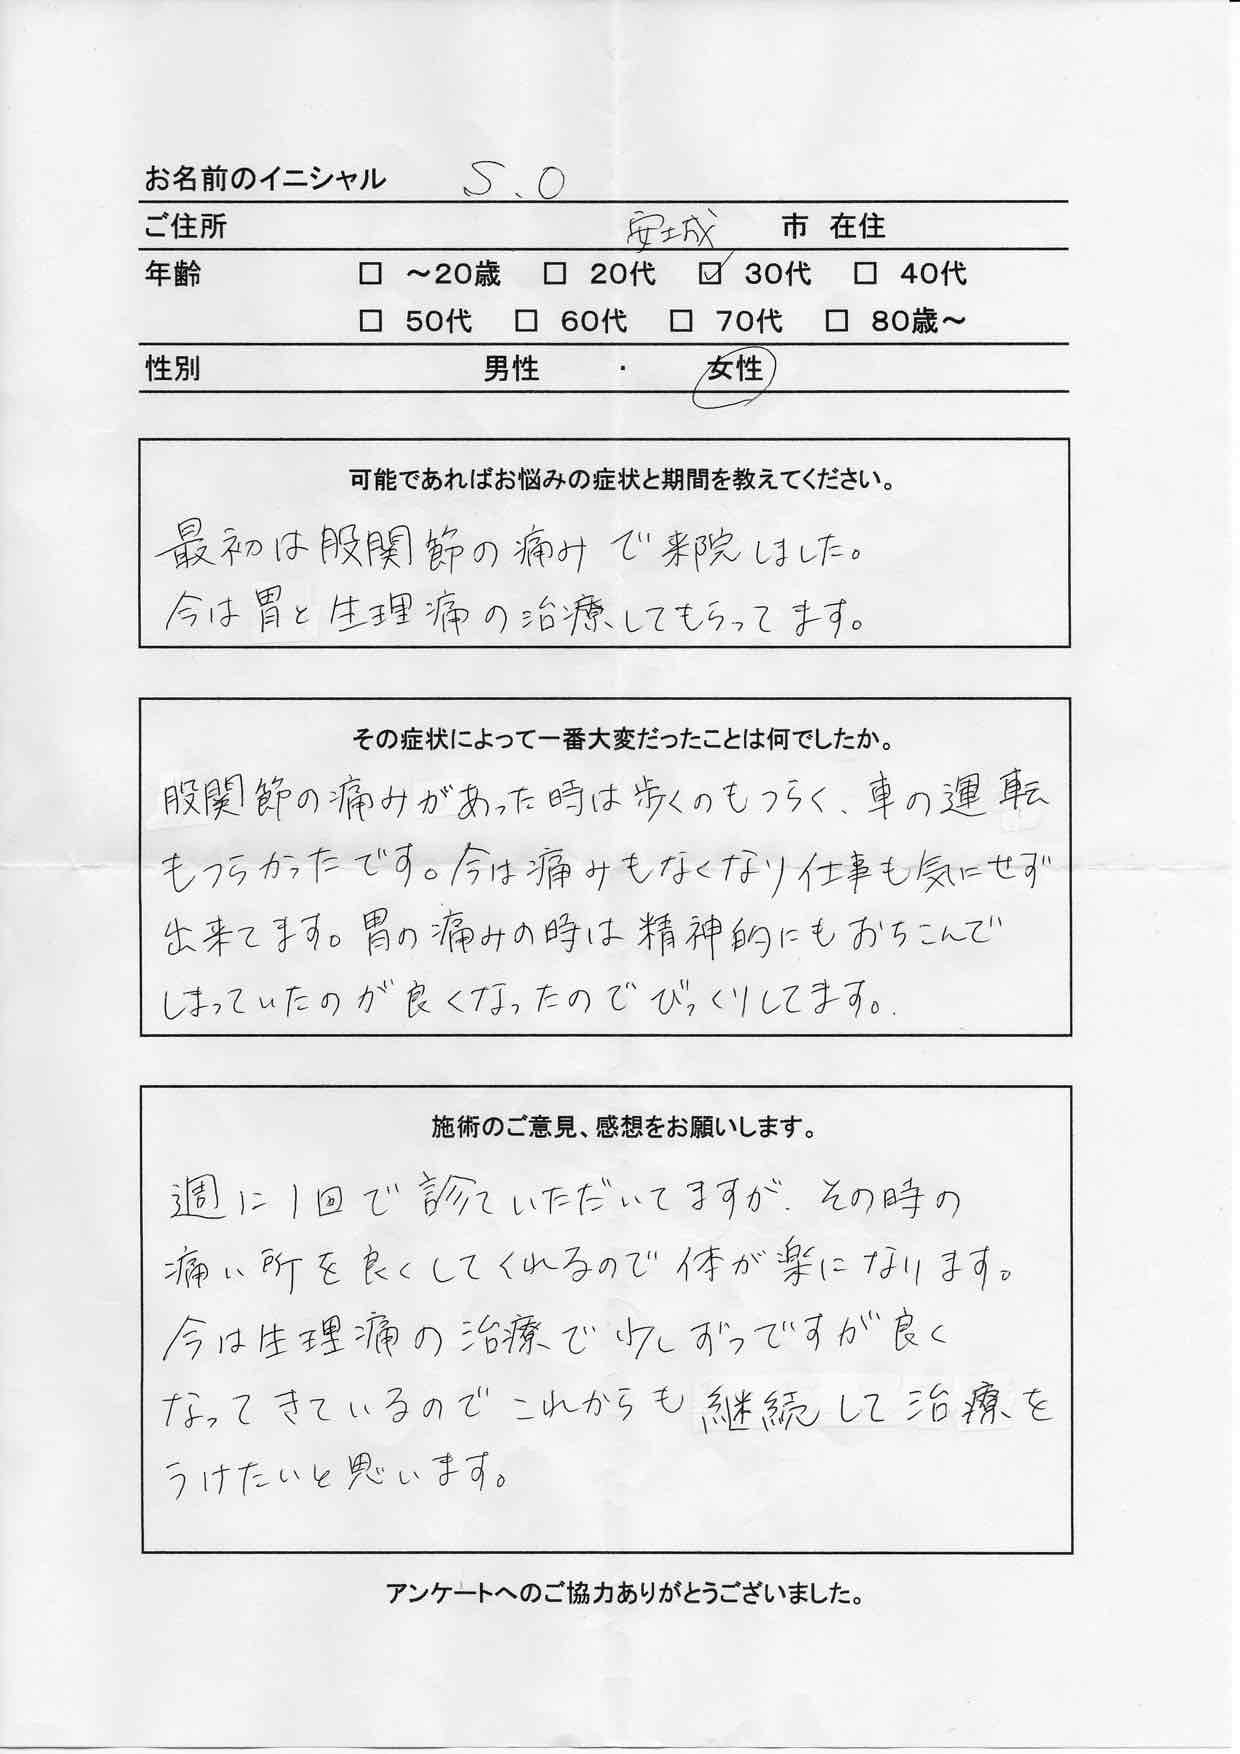 お名前のイニシャル S.O
ご住所 安城 市 在住
年齢 □ ～20歳 □ 20代 ☑ 30代 □ 40代
□ 50代 □ 60代 □ 70代 □ 80歳～
性別 男性 ・ 女性
可能であればお悩みの症状と期間を教えてください。
最初は股関節の痛みで来院しました。
今は胃と生理痛の治療してもらってます。
その症状によって一番大変だったことは何でしたか。
股関節の痛みがあった時は歩くのもつらく、車の運転
もつらかったです。今は痛みもなくなり仕事も気にせず
出来てます。胃の痛みの時は精神的にもおちこんで
しまっていたのが良くなったのでびっくりしてます。
施術のご意見、感想をお願いします。
週に1回で診ていただいてますが、その時の
痛い所を良くしてくれるので体が楽になります。
今は生理痛の治療で少しずつですが良く
なってきているのでこれからも継続して治療を
うけたいと思います。
アンケートへのご協力ありがとうございました。